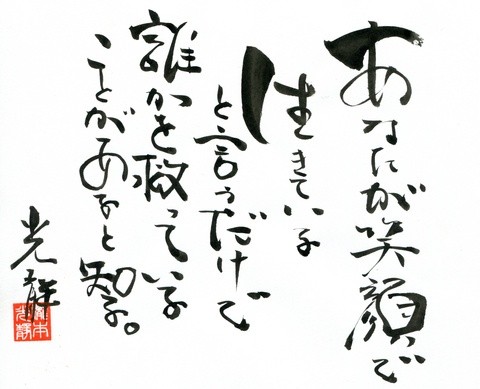 あなたが笑顔で
生きている
と言うだけで
誰かを救っている
ことがあると知る。
光静